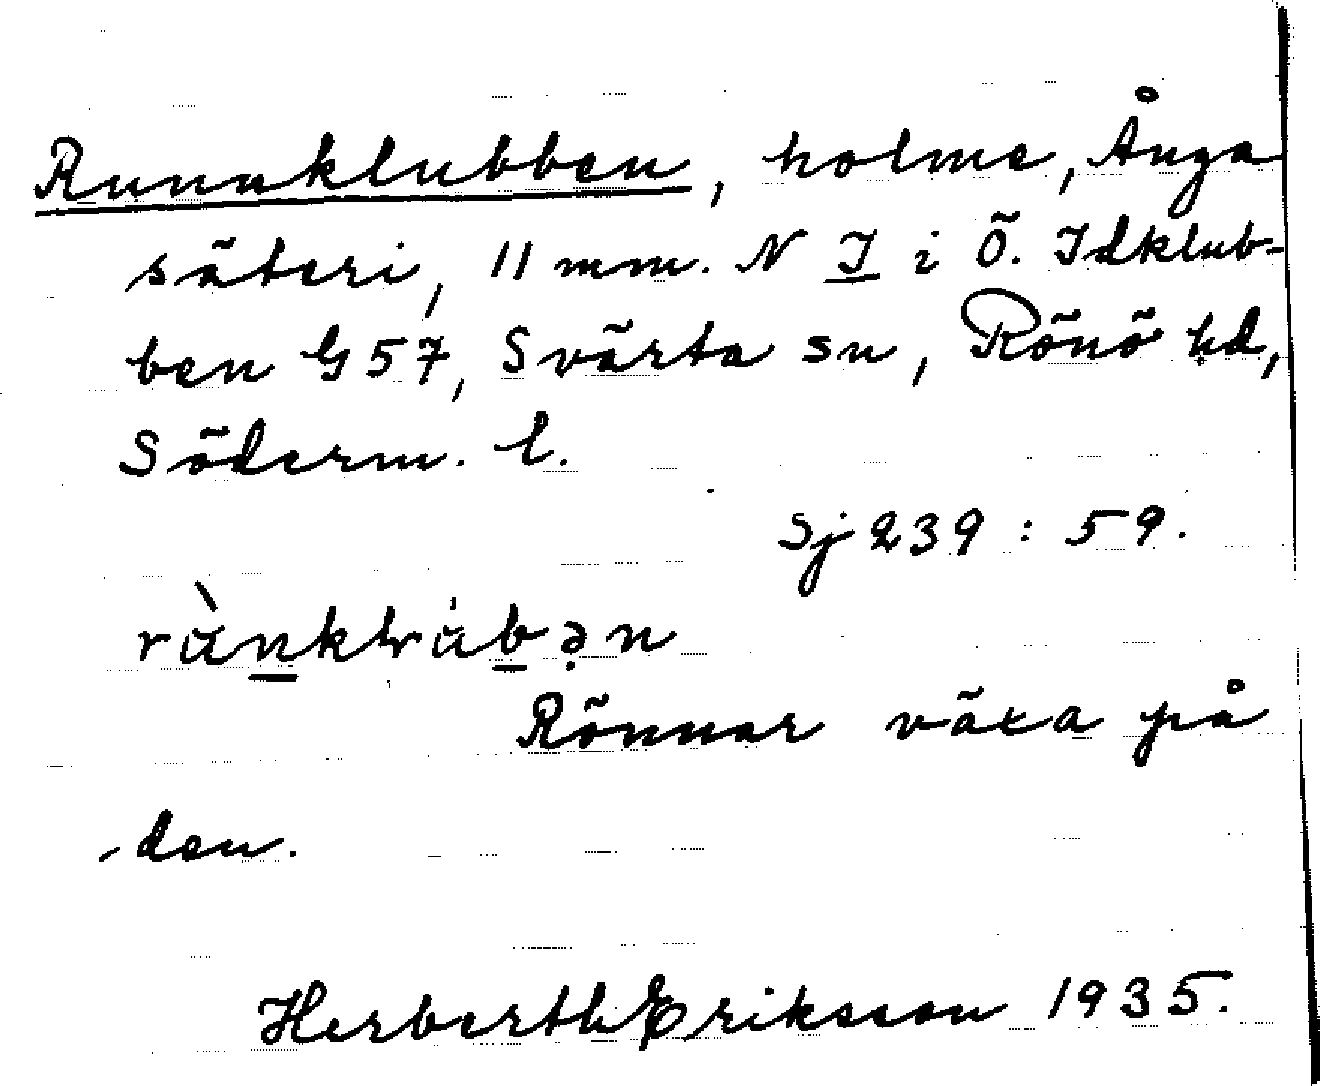 Runnklubben, holme, Ånga
säteri, 11 mm. N I i Ö. Idklub-
ben G 57, Svärta sn, Rönö hd,
Söderm. l.
Sj 239 : 59.
Rönnar växa på
den.
Herberth Eriksson 1935.